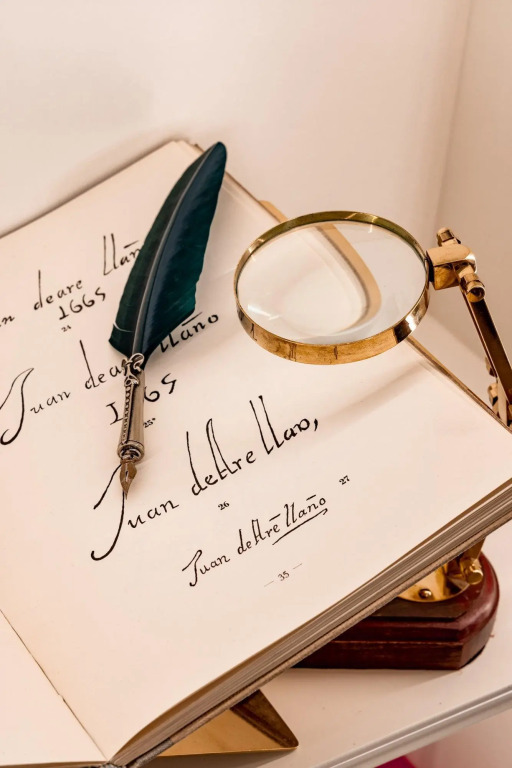 n deare llañ
1665
21
Juan dea llaño
1 65
25ª
Juan deAre llano,
26
27
Juan deAre llaño
— 35 —